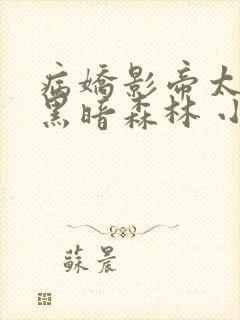 病嬌影帝太
黑暗森林 小
蘇晨